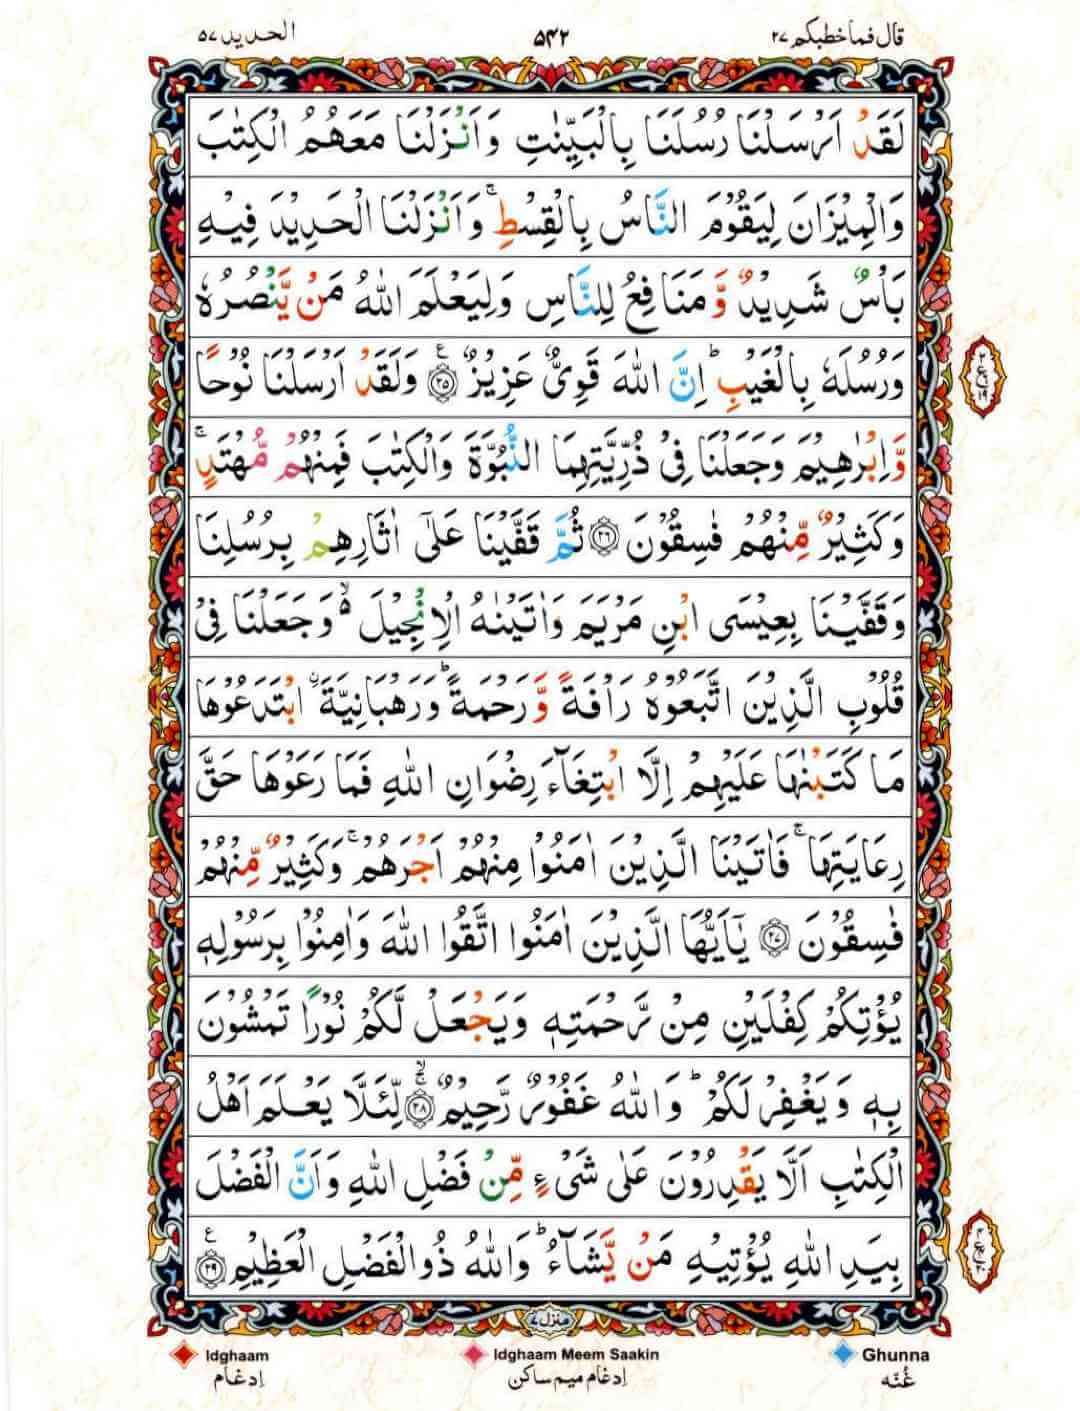 قال فما خطبكم ٢٧ ٥٤٢ الحديد ٥٧
لَقَدْ اَرْسَلْنَا رُسُلَنَا بِالْبَيِّنٰتِ وَاَنْزَلْنَا مَعَهُمُ الْكِتٰبَ
وَالْمِيْزَانَ لِيَقُوْمَ النَّاسُ بِالْقِسْطِ ۚ وَاَنْزَلْنَا الْحَدِيْدَ فِيْهِ
بَاْسٌ شَدِيْدٌ وَّمَنَافِعُ لِلنَّاسِ وَلِيَعْلَمَ اللّٰهُ مَنْ يَّنْصُرُهٗ
وَرُسُلَهٗ بِالْغَيْبِ ؕ اِنَّ اللّٰهَ قَوِيٌّ عَزِيْزٌ ﴿۲۵﴾ ع وَلَقَدْ اَرْسَلْنَا نُوْحًا
وَّاِبْرٰهِيْمَ وَجَعَلْنَا فِيْ ذُرِّيَّتِهِمَا النُّبُوَّةَ وَالْكِتٰبَ فَمِنْهُمْ مُّهْتَدٍ ۚ
وَكَثِيْرٌ مِّنْهُمْ فٰسِقُوْنَ ﴿۲۶﴾ ثُمَّ قَفَّيْنَا عَلٰۤى اٰثَارِهِمْ بِرُسُلِنَا
وَقَفَّيْنَا بِعِيْسَى ابْنِ مَرْيَمَ وَاٰتَيْنٰهُ الْاِنْجِيْلَ ۙ۬ وَجَعَلْنَا فِيْ
قُلُوْبِ الَّذِيْنَ اتَّبَعُوْهُ رَاْفَةً وَّرَحْمَةً ؕ وَرَهْبَانِيَّةَ ۨ ابْتَدَعُوْهَا
مَا كَتَبْنٰهَا عَلَيْهِمْ اِلَّا ابْتِغَآءَ رِضْوَانِ اللّٰهِ فَمَا رَعَوْهَا حَقَّ
رِعَايَتِهَا ۚ فَاٰتَيْنَا الَّذِيْنَ اٰمَنُوْا مِنْهُمْ اَجْرَهُمْ ۚ وَكَثِيْرٌ مِّنْهُمْ
فٰسِقُوْنَ ﴿۲۷﴾ يٰۤاَيُّهَا الَّذِيْنَ اٰمَنُوا اتَّقُوا اللّٰهَ وَاٰمِنُوْا بِرَسُوْلِهٖ
يُؤْتِكُمْ كِفْلَيْنِ مِنْ رَّحْمَتِهٖ وَيَجْعَلْ لَّكُمْ نُوْرًا تَمْشُوْنَ
بِهٖ وَيَغْفِرْ لَكُمْ ؕ وَاللّٰهُ غَفُوْرٌ رَّحِيْمٌ ﴿۲۸﴾ ۙۚ لِّئَلَّا يَعْلَمَ اَهْلُ
الْكِتٰبِ اَلَّا يَقْدِرُوْنَ عَلٰى شَيْءٍ مِّنْ فَضْلِ اللّٰهِ وَاَنَّ الْفَضْلَ
بِيَدِ اللّٰهِ يُؤْتِيْهِ مَنْ يَّشَآءُ ؕ وَاللّٰهُ ذُو الْفَضْلِ الْعَظِيْمِ ﴿۲۹﴾ ع
منزل ٧
Idghaam Idghaam Meem Saakin Ghunna
اِدغام اِدغام میم ساکن غُنّه